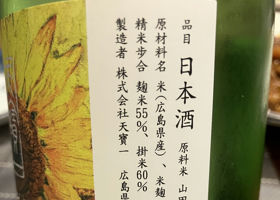 品目 日本酒 原料米 山田
原材料名 米(広島県産)、米麹
精米歩合 麹米55%、掛米60%
製造者 株式会社天寶一 広島県